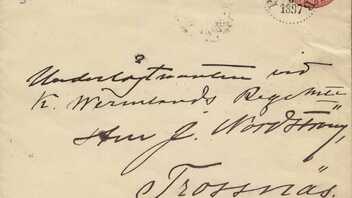 1897
Underlöjtnanten vid
K. Wermlands Regemente
Herr J. Nordström,
Trossnäs.